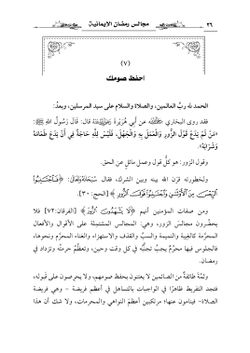 ٢٦ مجالس رمضان الإيمانية
(٧)
احفظ صومك
الحمد لله ربِّ العالمين، والصلاة والسلام على سيد المرسلين، وبعدُ:
فقد روى البخاري عن أبي هُرَيْرَةَ قال: قَالَ رَسُولُ اللهِ ﷺ:
«مَنْ لَمْ يَدَعْ قَوْلَ الزُّورِ وَالْعَمَلَ بِهِ وَالْجَهْلَ، فَلَيْسَ لِلَّهِ حَاجَةٌ فِي أَنْ يَدَعَ طَعَامَهُ
وَشَرَابَهُ».
وقول الزور: هو كلُّ قول وعمل مائلٍ عن الحق.
ولخطورته قرن الله بينه وبين الشرك، فقال سُبْحَانَهُ وَتَعَالَى: ﴿فَاجْتَنِبُوا
الرِّجْسَ مِنَ الْأَوْثَانِ وَاجْتَنِبُوا قَوْلَ الزُّورِ﴾ [الحج: ٣٠].
ومن صفات المؤمنين أنهم ﴿لَا يَشْهَدُونَ الزُّورَ﴾ [الفرقان:٧٢] فلا
يحضُرون مجالسَ الزور، وهي: المجالس المشتملة على الأقوال والأفعال
المحرَّمة كالغِيبة والنميمة والسبِّ والقذف والاستهزاء، والغناء المحرَّم ونحوها،
فالجلوس فيها محرَّمٌ يجبُ تجنُّبه في كل وقت وحين، وتعظُمُ حرمتُه وتزداد في
رمضان.
وثمَّةَ طائفةٌ من الصائمين لا يعتنون بحفظ صومهم، ولا يحرِصون على قَبوله،
فتجد التفريط ظاهرًا في الواجبات بالتساهل في أعظم فريضة - وهي فريضة
الصلاة- فينامون عنها؛ مرتكبين أعظمَ النواهي والمحرمات، ولا شك أن هذا